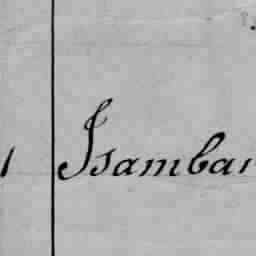 1 Isambar